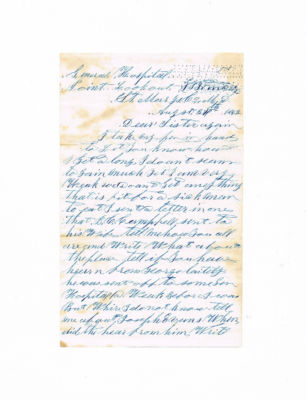 General Hospital
Point Lookout
St Mary's
August 1862
Dear Sister again
I take my pen in hand
to let you know how
I get along I do ant seem
to gain much yet I am very
Weak we do ant get any thing
that is fit for a sick man
to eat I sent a letter in one
that Campbell sent to
his Wife tell me how you all
are and Write What about
the place tell if you have
heard from George laitely
he was sent off to som
Hospital Weak before I was
But Whir I do not know tell
me about Joseph When
did the hear from him Write